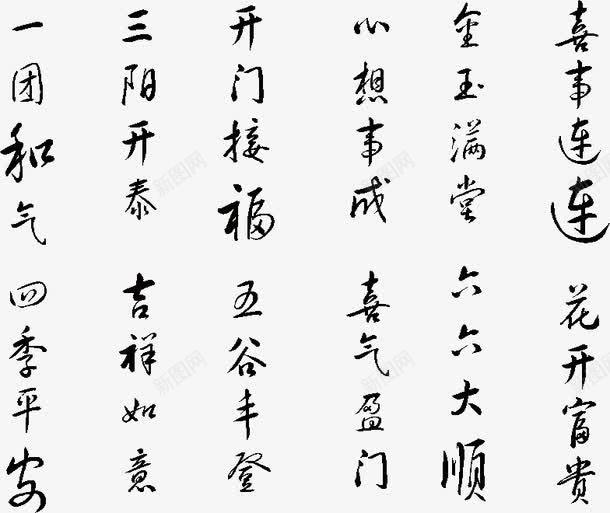 一团和气
三阳开泰
开门接福
心想事成
金玉满堂
喜事连连
四季平安
吉祥如意
五谷丰登
喜气盈门
六六大顺
花开富貴